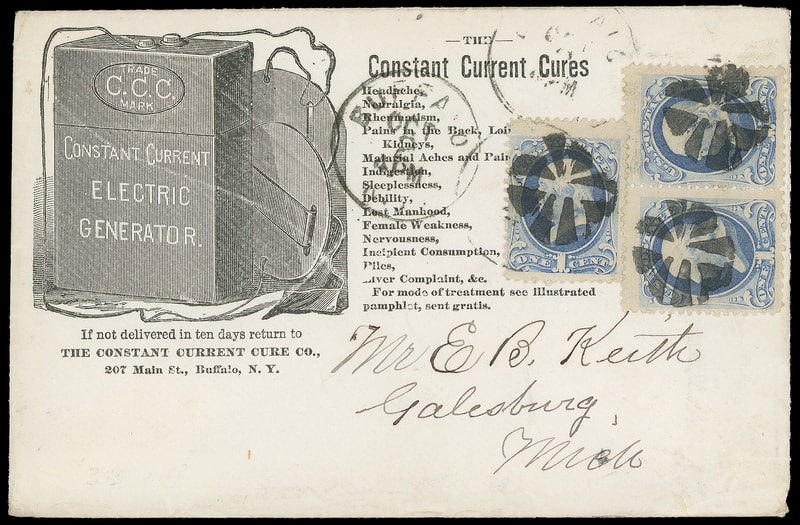 TRADE
C.C.C.
MARK
CONSTANT CURRENT
ELECTRIC
GENERATOR.
If not delivered in ten days return to
THE CONSTANT CURRENT CURE CO.,
207 Main St., Buffalo, N. Y.
—THE—
Constant Current Cures
Headache,
Neuralgia,
Rheumatism,
Pains in the Back,
Kidneys,
Malarial Aches and
Indigestion,
Sleeplessness,
Debility,
Lost Manhood,
Female Weakness,
Nervousness,
Incipient Consumption,
Piles,
Liver Complaint, &c.
For mode of treatment see Illustrated
pamphlet, sent gratis.
BUFFALO
OCT
PM
ONE CENT
ONE CENT
ONE CENT
Mr E B. Keith
Galesburg,
Mich